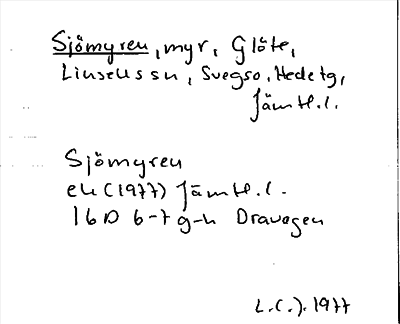 Sjömyren, myr, Glöte,
Linsells sn, Svegs o. Hede tg,
Jämtl. l.
Sjömyren
ek (1977) Jämtl. l.
16D 6-7 g-h Dravagen
L. C. J. 1977